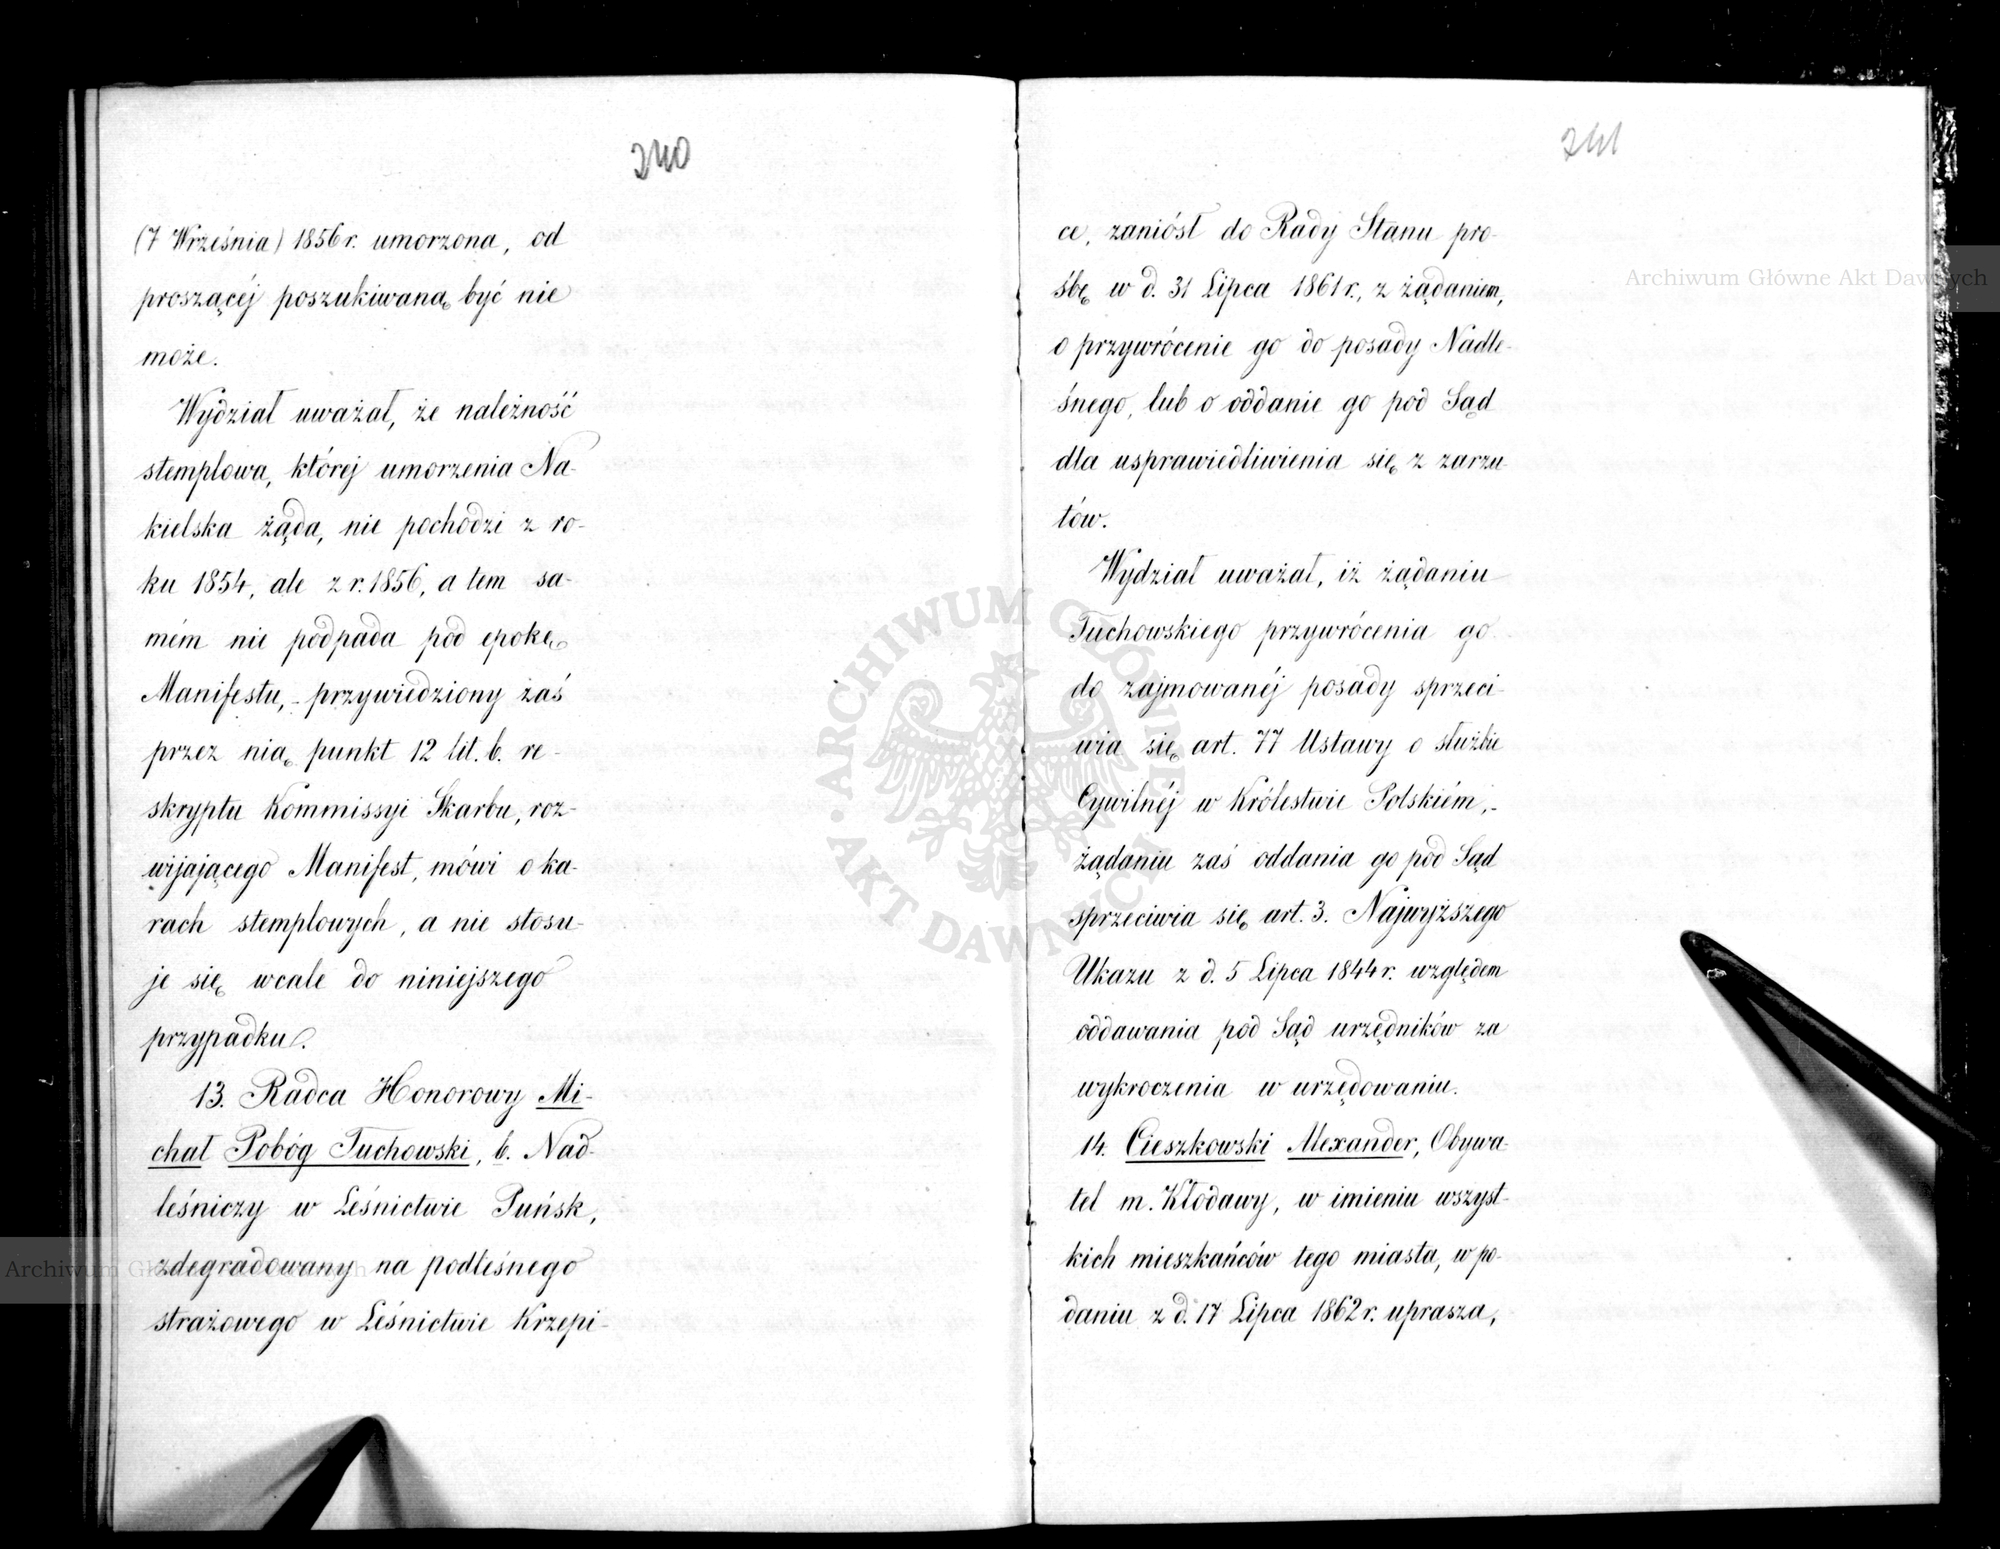 240
(7 Września) 1856 r. umorzona, od
proszącéj poszukiwaną być nie
może.
Wydział uważał, że należność
stemplowa, której umorzenia Na-
kielska żąda, nie pochodzi z ro-
ku 1854, ale z r. 1856, a tem sa-
mém nie podpada pod epokę
Manifestu, - przywiedziony zaś
przez nią punkt 12 lit. b. re-
skryptu Kommissyi Skarbu, roz-
wijającego Manifest, mówi o ka-
rach stemplowych, a nie stosu-
je się wcale do niniejszego
przypadku.
13. Radca Honorowy Mi-
chał Pobóg Tuchowski, b. Nad-
leśniczy w Leśnictwie Puńsk,
zdegradowany na podleśnego
strażowego w Leśnictwie Krzepi-
241
ce, zaniósł do Rady Stanu pro-
śbę w d. 31 Lipca 1861 r., z żądaniem,
o przywrócenie go do posady Nadle-
śnego, lub o oddanie go pod Sąd
dla usprawiedliwienia się z zarzu-
tów.
Wydział uważał, iż żądaniu
Tuchowskiego przywrócenia go
do zajmowanéj posady sprzeci-
wia się art. 77 Ustawy o służbie
Cywilnéj w Królestwie Polskiém, -
żądaniu zaś oddania go pod Sąd
sprzeciwia się art. 3. Najwyższego
Ukazu z d. 5 Lipca 1844 r. względem
oddawania pod Sąd urzędników za
wykroczenia w urzędowaniu.
14. Cieszkowski Alexander, Obywa-
tel m. Kłodawy, w imieniu wszyst-
kich mieszkańców tego miasta, w po-
daniu z d. 17 Lipca 1862 r. uprasza,
Archiwum Główne Akt Dawnych
ARCHIWUM GŁÓWNE AKT DAWNYCH
Archiwum Główne Akt Dawnych